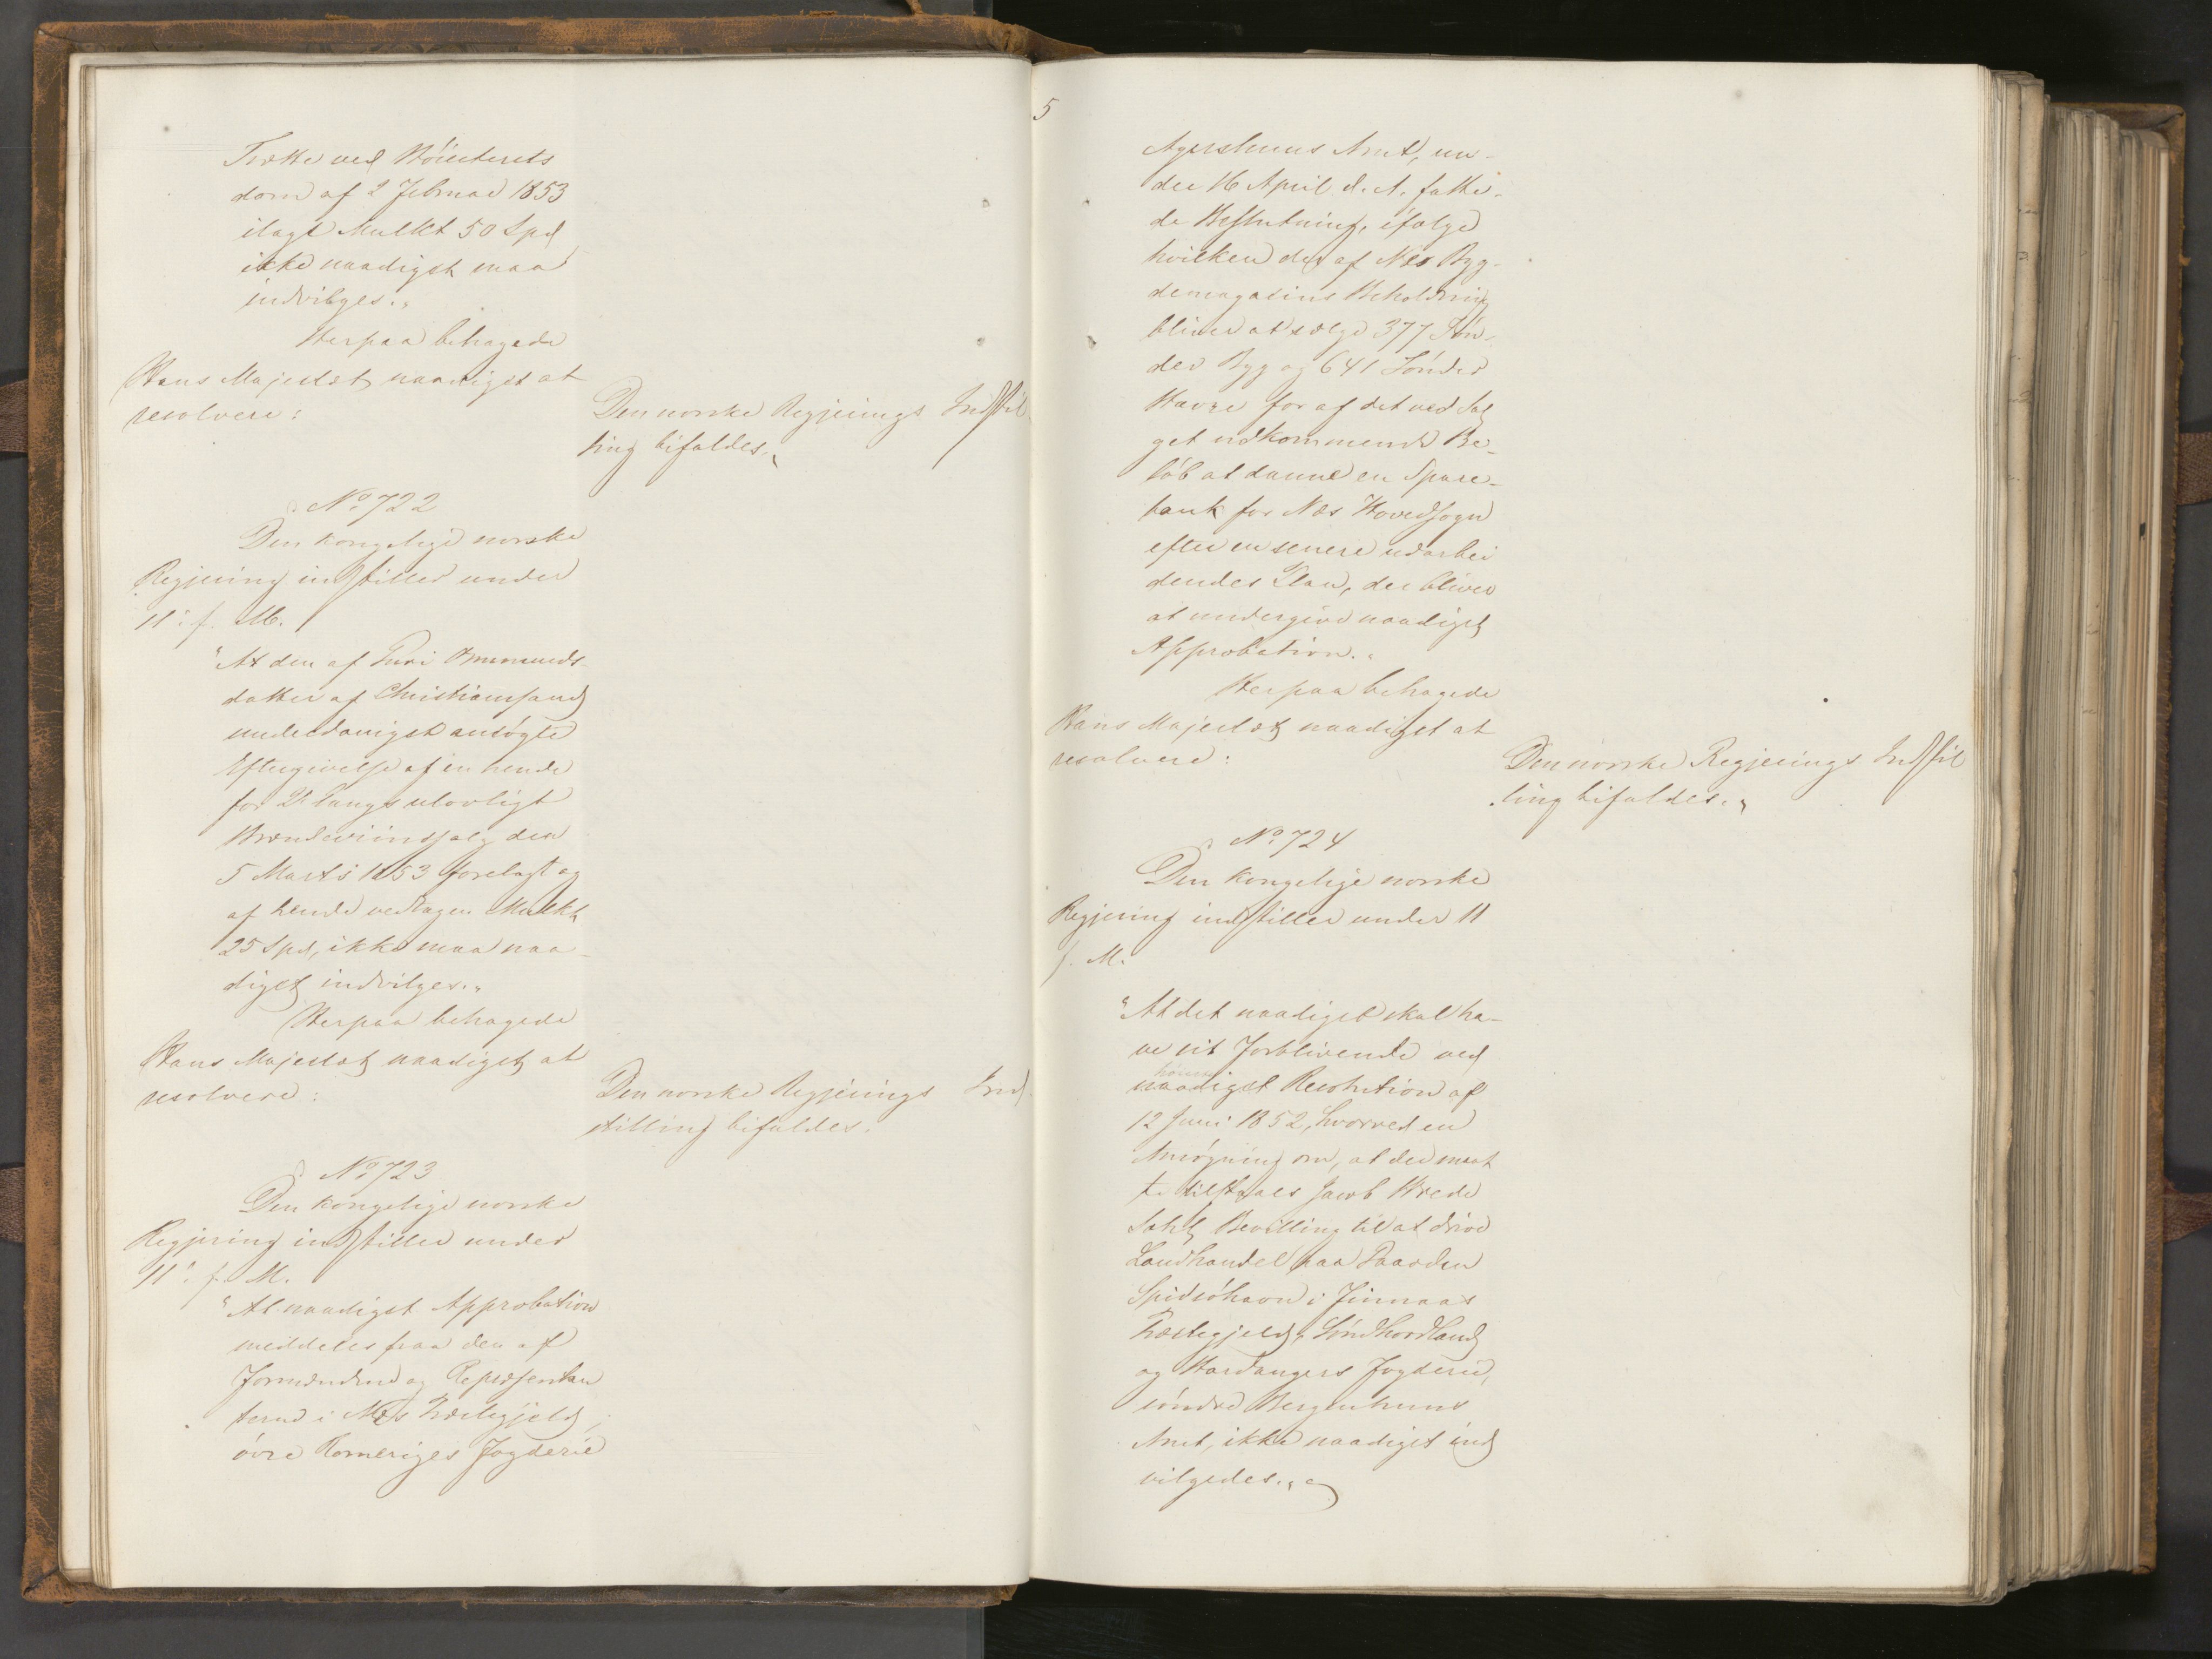 Trætte ved Höiesterets
dom af 2 Februar 1853
ilagt Mulkt 50 Spd
ikke naadigst maa
indvilges.„
Herpaa behagede
Hans Majestæt naadigst at
resolvere:
Den norske Regjerings Indstil
ling bifaldes.„
No 722
Den kongelige norske
Regjering indstiller under
11: f. M.
"At den af Guri Ommunds
datter af Christiansand
underdanigst ansögte
Eftergivelse af en hende
for 2 Gange ulovligt
Brændeviinssalg den
5 Marts 1853 forelagt og
af hende vedtagen Mulkt
25 Spd, ikke maa naa-
digst indvilges.„
Herpaa behagede
Hans Majestæt naadigst at
resolvere:
Den norske Regjerings Ind
stilling bifaldes.
No 723
Den kongelige norske
Regjering indstiller under
11". f. M.
"At naadigst Approbation
meddeles paa den af
Formændene og Repræsentan
terne i Næs Præstegjeld,
övre Romeriges Fogderie
5
Agershuus Amt, un-
der 16 April d. A. fatte-
de Beslutning, ifölge
hvilken der af Næs Byg-
demagasins Beholdning
bliver at sælge 377 Tön-
der Byg og 641 Tönder
Havre for af det ved Sal
get udkommende Be-
löb at danne en Spare-
bank for Næs Hovedsogn
efter en senere udarbei
dendes Plan, der bliver
at undergive naadigst
Approbation.„
Herpaa behagede
Hans Majestæt naadigst at
resolvere:
Den norske Regjerings Indstil
ling bifaldes.„
No 724
Den kongelige norske
Regjering indstiller under 11
f. M.
"At det naadigst skal ha-
ve sit Forblivende ved
höieste
naadigst Resolution af
12 Juni 1852, hvorved en
Ansögning om, at der maat
te tilstaaes Jacob Wrede
Bevilling til at drive
Landhandel paa Gaarden
i Finnaas
Præstegjeld, Söndhordland
og Hardangers Fogderie,
söndre Bergenhuus
Amt, ikke naadigst ind
vilgedes.„